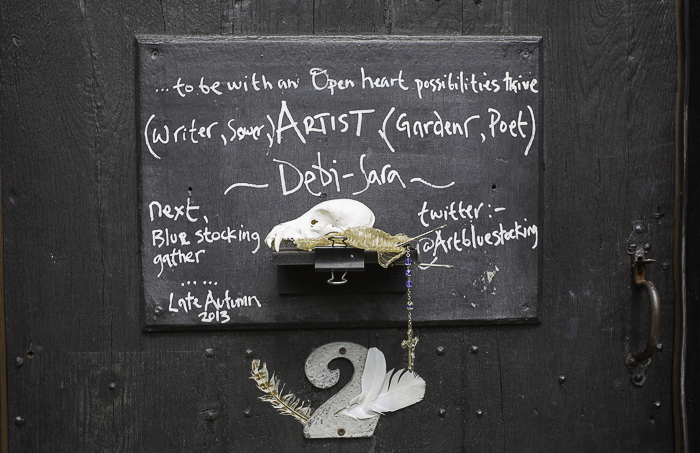 ...to be with an Open heart possibilities thrive
(Writer, Sewer,) ARTIST, (Gardenr, Poet)
~ Debi-Sara ~
next,
Blue stocking
gather
......
Late Autumn
2013
twitter:-
@Artbluestocking
2